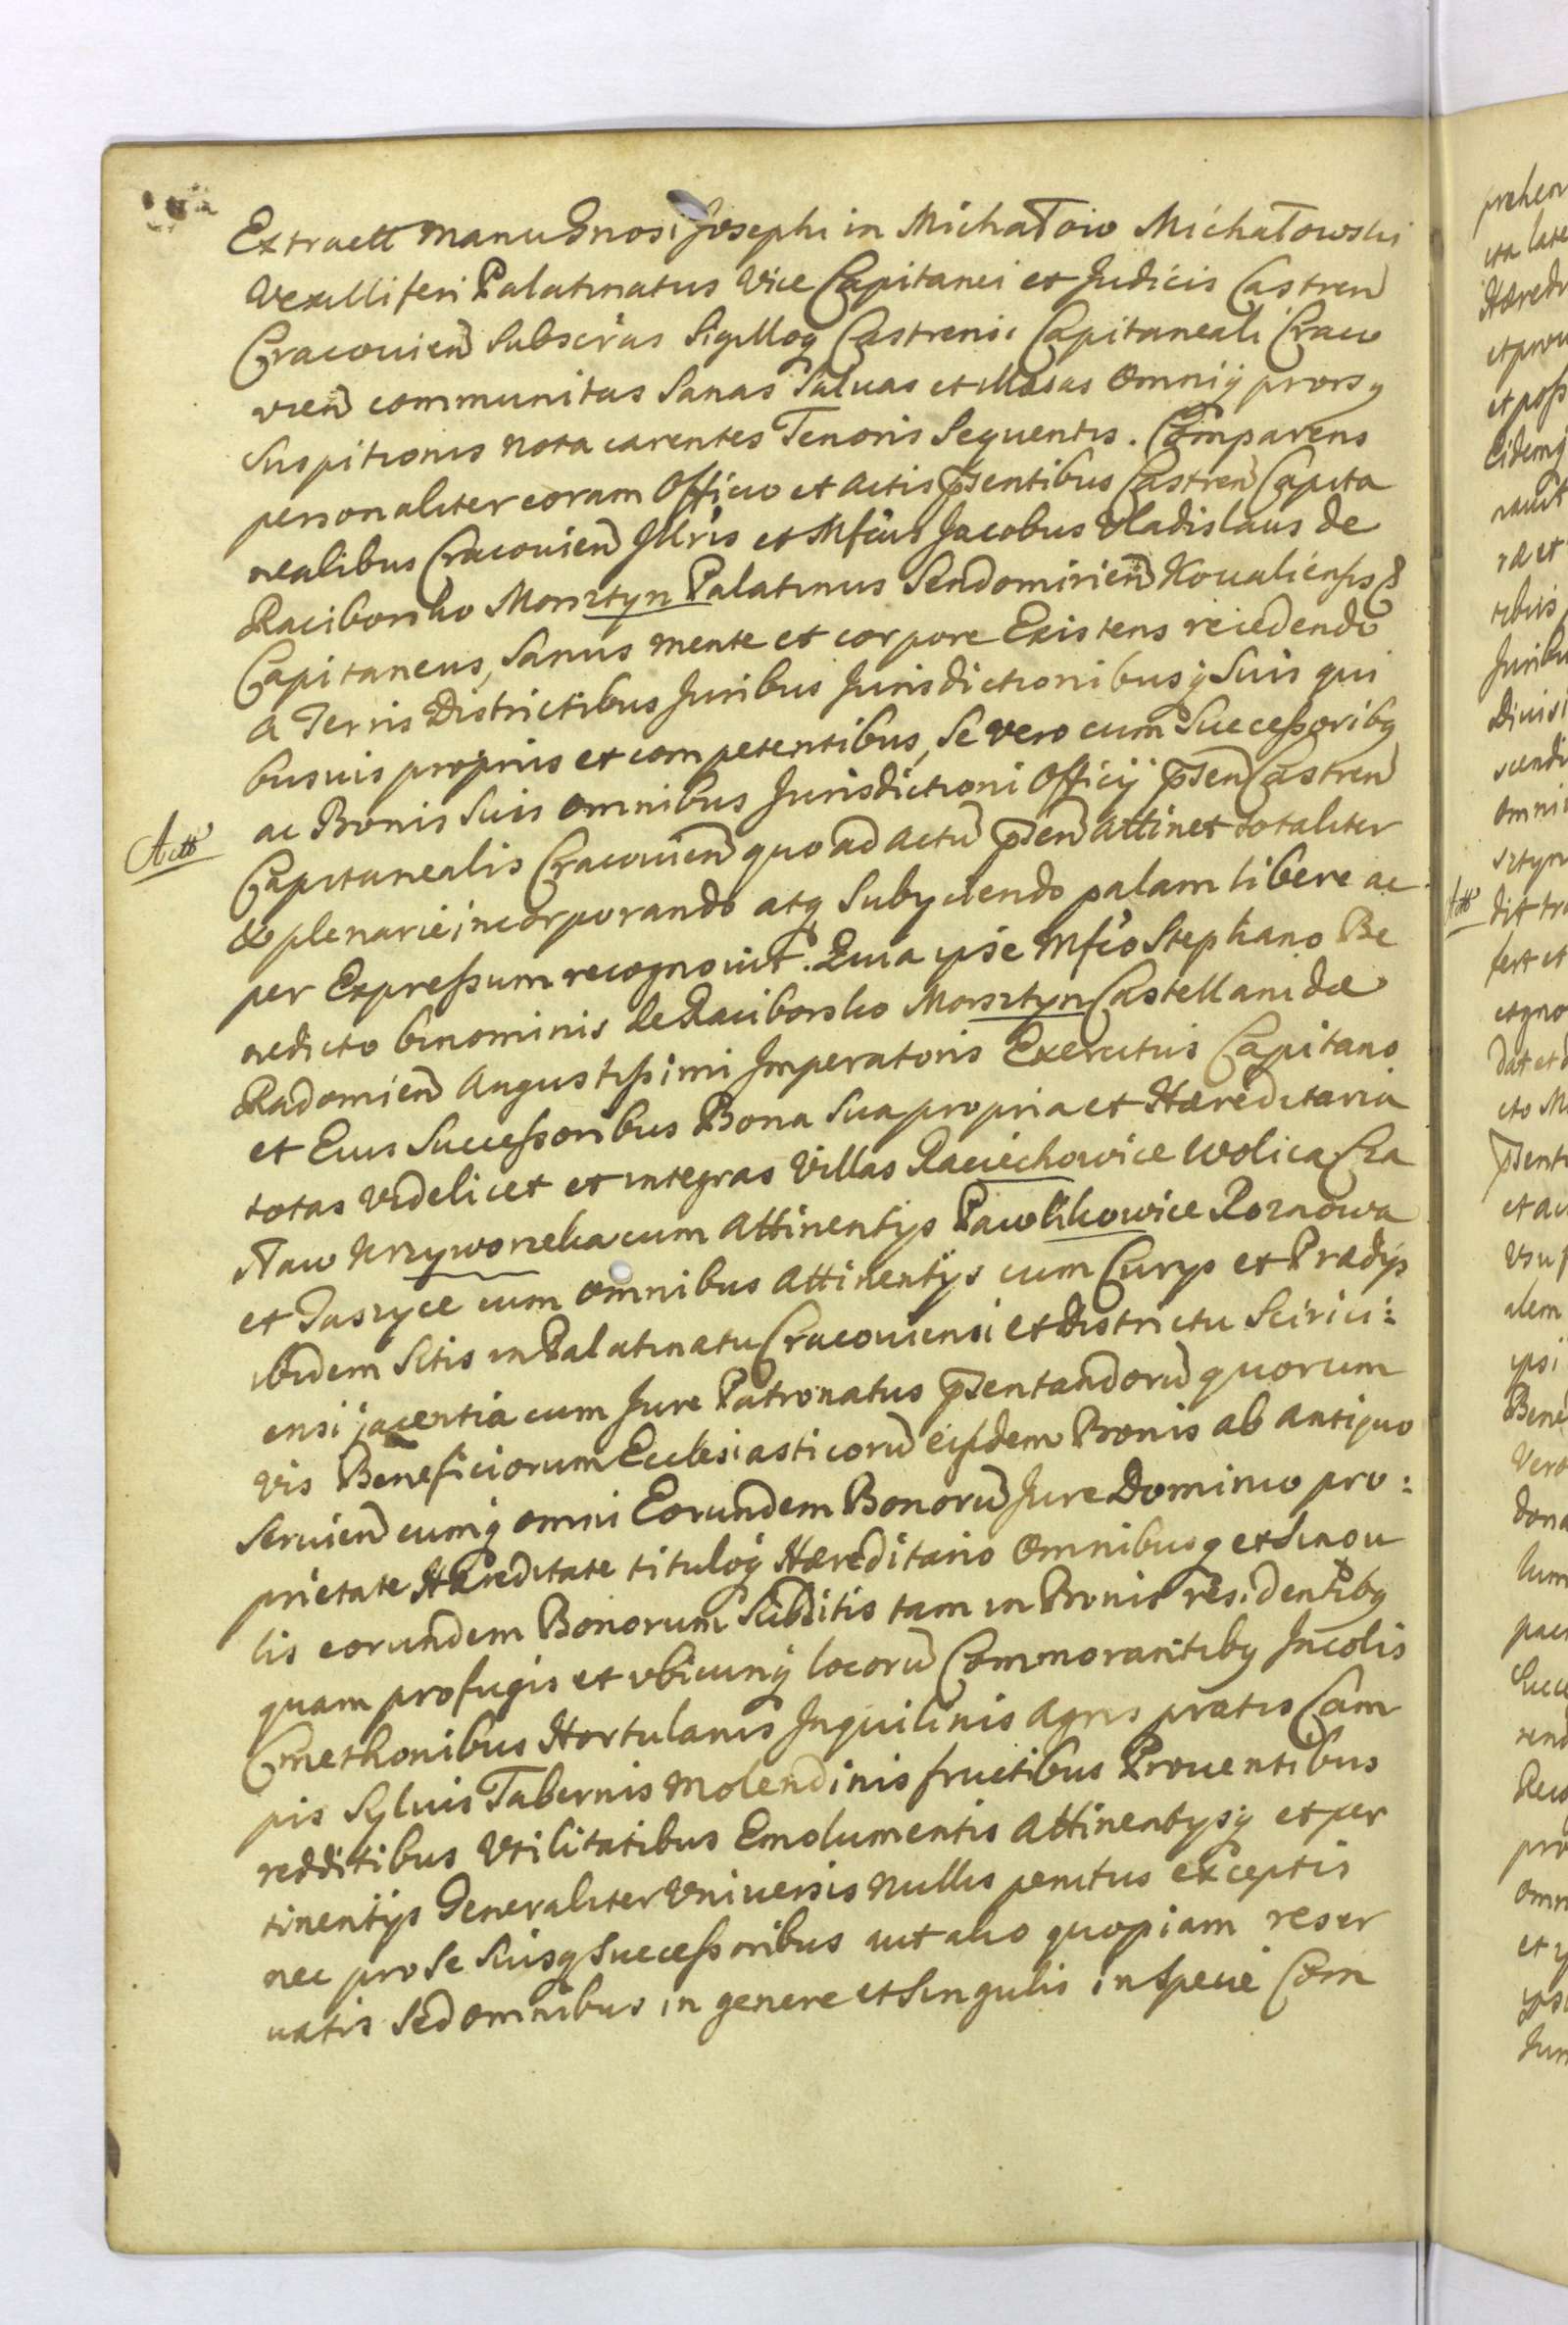 Extractt manu Gnosi Josephi in Michałow Michałowski
Vexilliferi Palatinatus Vice Capitanei et Judicis Castren
Cracovien Subscras Sigilloq Castrensi Capitaneali Craco
vien communitas Sanas Saluas et illasas Omniq prorsq
Suspitionis nota carentes Tenoris Sequentis. Comparens
personaliter coram Officio et Actis psentibus Castren Capita
nealibus Cracouien Jllris et Mfcus Jacobus Vladislaus de
Raciborsko Morsztyn Palatinus Sendomirien Koualiensis &
Capitaneus, Sanus mente et corpore Existens recedendo
a Terris Districtibus Juribus Jurisdictionibusq Suis qui
busuis proprijs et competentibus, Se vero cum Successoribq
ac Bonis Suis omnibus Jurisdictioni Officij psen Castren
Actto
Capitanealis Cracouien quo ad actu psen attinet totaliter
& plenarie incorporando atq Subyciendo palam libere ac
per Expressum recognouit. Quia ipse Mfco Stephano Be
nedicto binominis de Raciborsko Morsztyn Castellanidæ
Radomien Augustissimi Jmperatoris Exercitus Capitano
et Eius Successoribus Bona Sua propria et Hæreditaria
totas Videlicet et integras Villas Raciechowice Wolica Cza
sław Krzyworzeka cum Attinentÿs Pawlikowice Roznowa
et Taszyce cum omnibus Attinentÿs cum Curÿs et Prædÿs
ibidem Sitis in Palatinatu Cracouiensi et Districtu Scirici:
ensi jacentia cum Jure Patronatus psentandoru quorum
vis Beneficiorum Ecclesiasticoru eisdem Bonis ab antiquo
Seruien cumq omni Eorundem Bonoru Jure Dominio pro:
prietate Hæreditate tituloq Hæreditario Omnibusq et Singu
lis eorundem Bonorum Subditis tam in Bonis residentibq
quam profugis et vbicunq locoru Commorantibq Jncolis
Cmethonibus Hortulanis Jnquilinis Agris pratis Cam
pis Syluis Tabernis Molendinis fructibus Prouentibus
redditibus Vtilitatibus Emolumentis Attinentysq et per
tinentÿs Generaliter Vniuersis Nullis penitus exceptis
nec pro Se Suisq Successoribus aut alio quopiam reser
uatis Sed omnibus in genere et Singulis in Specie Com